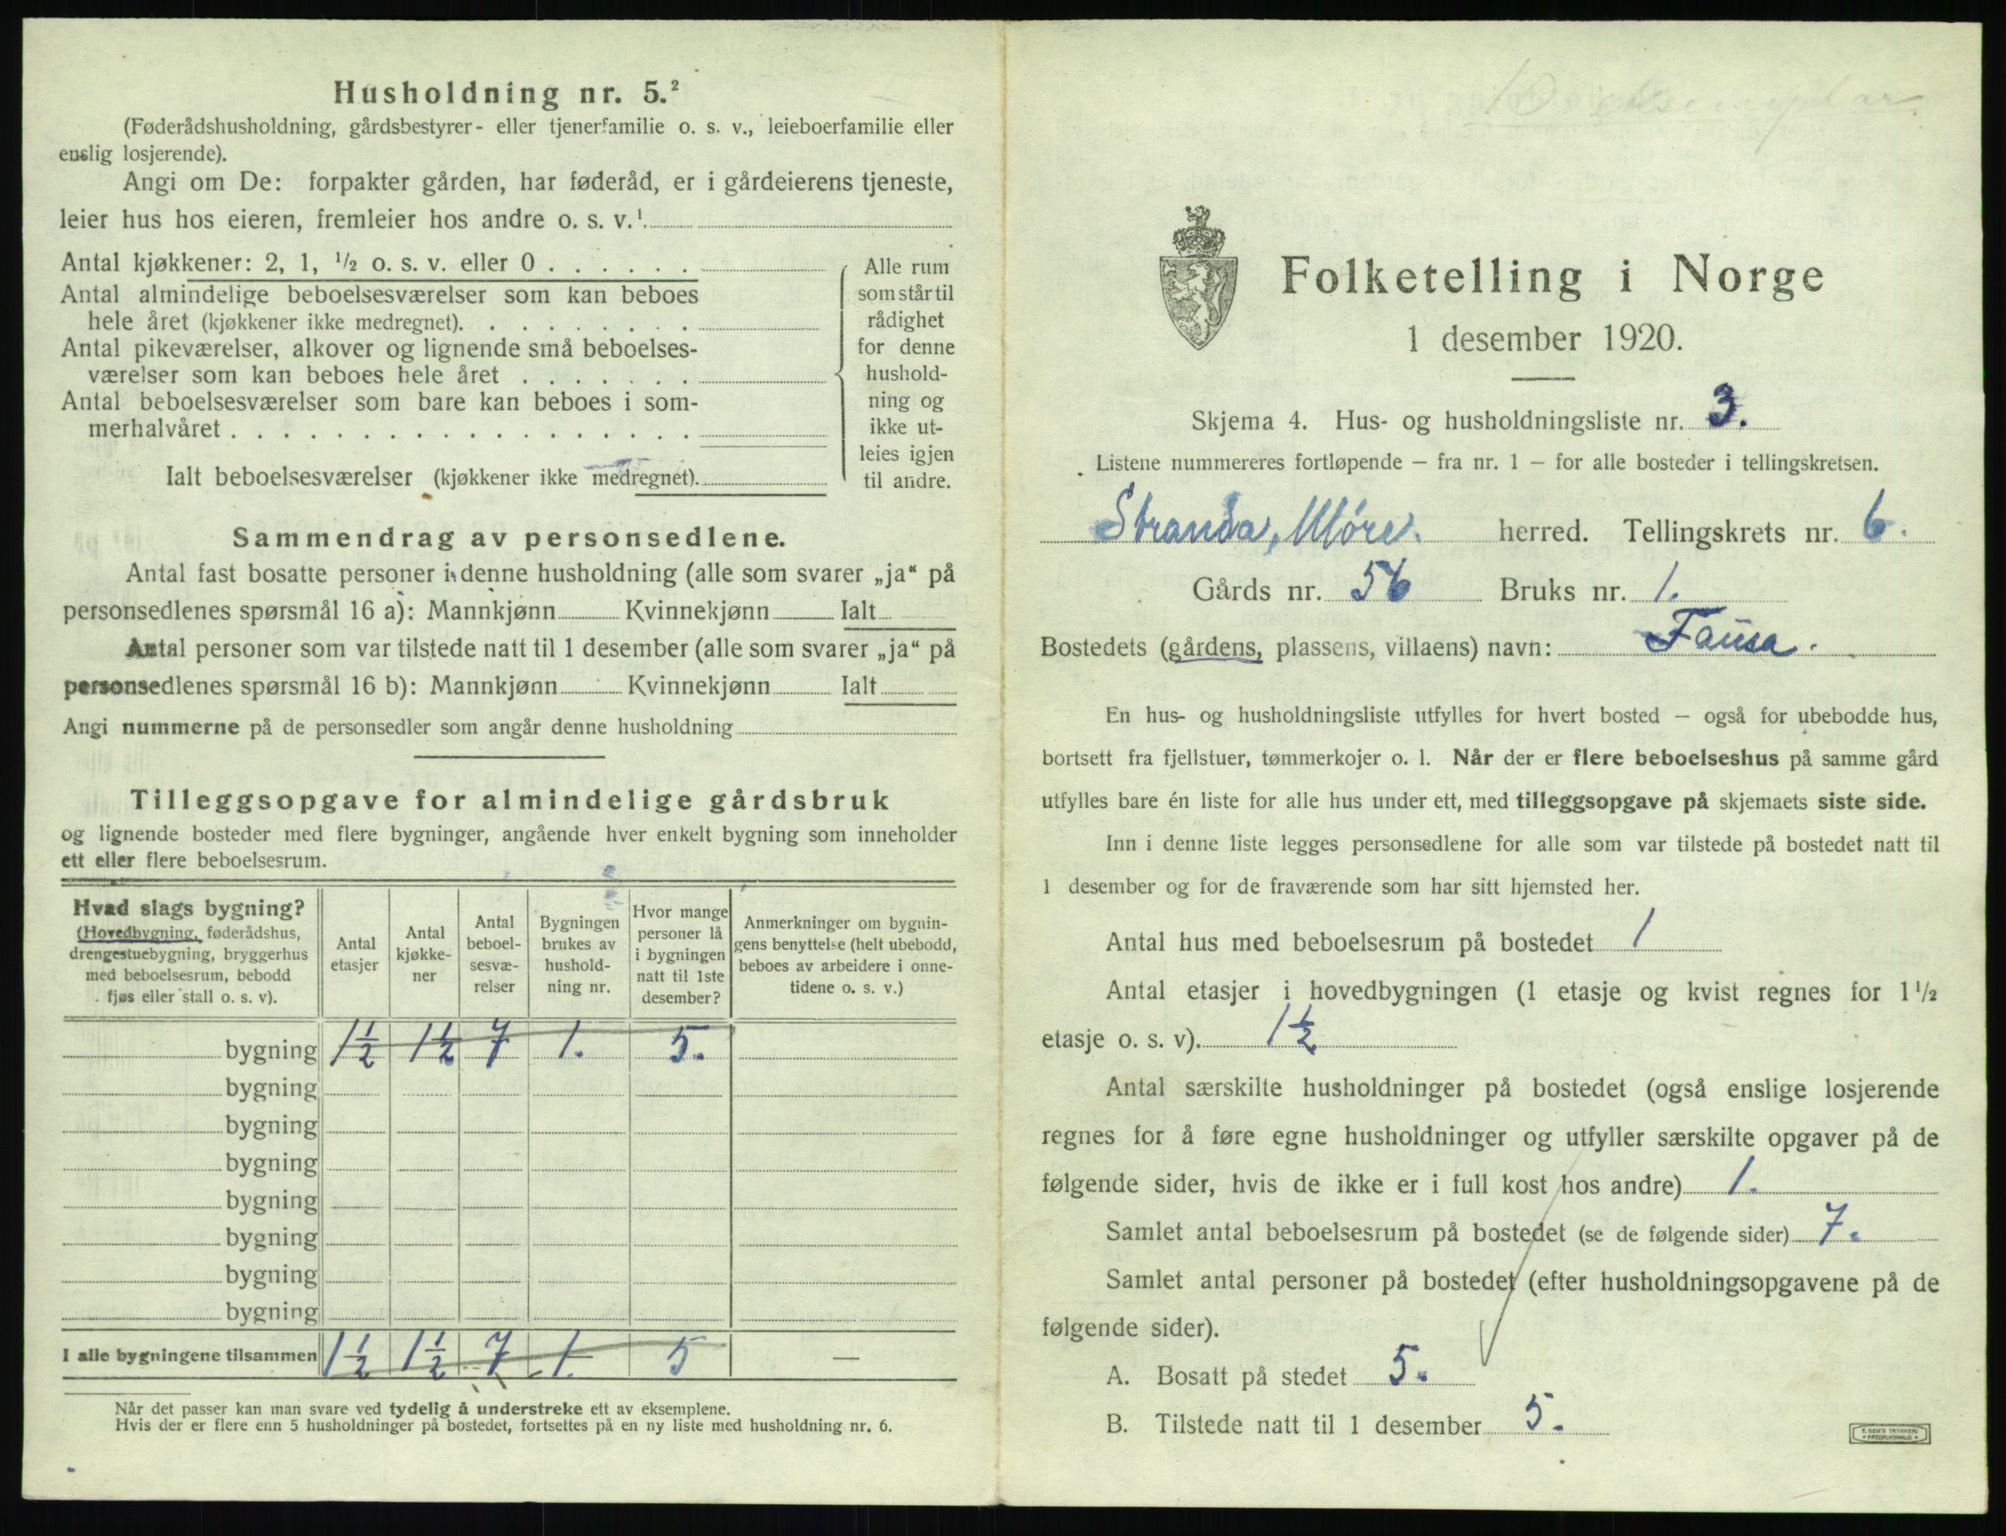 Husholdning nr. 5.²
(Føderådshusholdning, gårdsbestyrer- eller tjenerfamilie o. s. v., leieboerfamilie eller
enslig losjerende).
Angi om De: forpakter gården, har føderåd, er i gårdeierens tjeneste,
leier hus hos eieren, fremleier hos andre o. s. v.¹
Antal kjøkkener: 2, 1, ½ o. s. v. eller 0
Antal almindelige beboelsesværelser som kan beboes
hele året (kjøkkener ikke medregnet).
Antal pikeværelser, alkover og lignende små beboelses-
værelser som kan beboes hele året
Antal beboelsesværelser som bare kan beboes i som-
merhalvåret
Ialt beboelsesværelser (kjøkkener ikke medregnet).
Alle rum
som står til
rådighet
for denne
hushold-
ning og
ikke ut-
leies igjen
til andre.
Sammendrag av personsedlene.
Antal fast bosatte personer i denne husholdning (alle som svarer „ja“ på
personsedlenes spørsmål 16 a): Mannkjønn Kvinnekjønn Ialt
Antal personer som var tilstede natt til 1 desember (alle som svarer „ja“ på
personsedlenes spørsmål 16 b): Mannkjønn Kvinnekjønn Ialt
Angi nummerne på de personsedler som angår denne husholdning
Tilleggsopgave for almindelige gårdsbruk
og lignende bosteder med flere bygninger, angående hver enkelt bygning som inneholder
ett eller flere beboelsesrum.
Hvad slags bygning?
(Hovedbygning, føderådshus,
drengestuebygning, bryggerhus
med beboelsesrum, bebodd
fjøs eller stall o. s. v).
Antal
etasjer
Antal
kjøkke-
ner
Antal
beboel-
sesvæ-
relser
Bygningen
brukes av
hushold-
ning nr.
Hvor mange
personer lå
i bygningen
natt til 1ste
desember?
Anmerkninger om bygnin-
gens benyttelse (helt ubebodd,
beboes av arbeidere i onne-
tidene o. s. v.)
bygning 1½ 1½ 7 1. 5.
bygning
bygning
bygning
bygning
bygning
bygning
bygning
I alle bygningene tilsammen 1½ 1½ 7 1. 5 —
Når det passer kan man svare ved tydelig å understreke ett av eksemplene.
Hvis der er flere enn 5 husholdninger på bostedet, fortsettes på en ny liste med husholdning nr. 6.
Folketelling i Norge
1 desember 1920.
Skjema 4. Hus- og husholdningsliste nr. 3.
Listene nummereres fortløpende – fra nr. 1 – for alle bosteder i tellingskretsen.
Stranda, Møre. herred. Tellingskrets nr. 6.
Gårds nr. 56 Bruks nr. 1.
Bostedets (gårdens, plassens, villaens) navn: Fausa.
En hus- og husholdningsliste utfylles for hvert bosted – også for ubebodde hus,
bortsett fra fjellstuer, tømmerkojer o. l. Når der er flere beboelseshus på samme gård
utfylles bare én liste for alle hus under ett, med tilleggsopgave på skjemaets siste side.
Inn i denne liste legges personsedlene for alle som var tilstede på bostedet natt til
1 desember og for de fraværende som har sitt hjemsted her.
Antal hus med beboelsesrum på bostedet 1
Antal etasjer i hovedbygningen (1 etasje og kvist regnes for 1½
etasje o. s. v). 1½
Antal særskilte husholdninger på bostedet (også enslige losjerende
regnes for å føre egne husholdninger og utfyller særskilte opgaver på de
følgende sider, hvis de ikke er i full kost hos andre) 1.
Samlet antal beboelsesrum på bostedet (se de følgende sider) 7.
Samlet antal personer på bostedet (efter husholdningsopgavene på de
følgende sider).
A. Bosatt på stedet 5.
B. Tilstede natt til 1 desember 5.